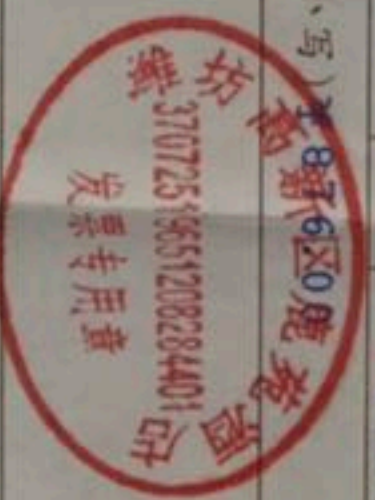 小写)￥876.00
潍坊高新区鹿苑酒店
37072519651208284401
发票专用章